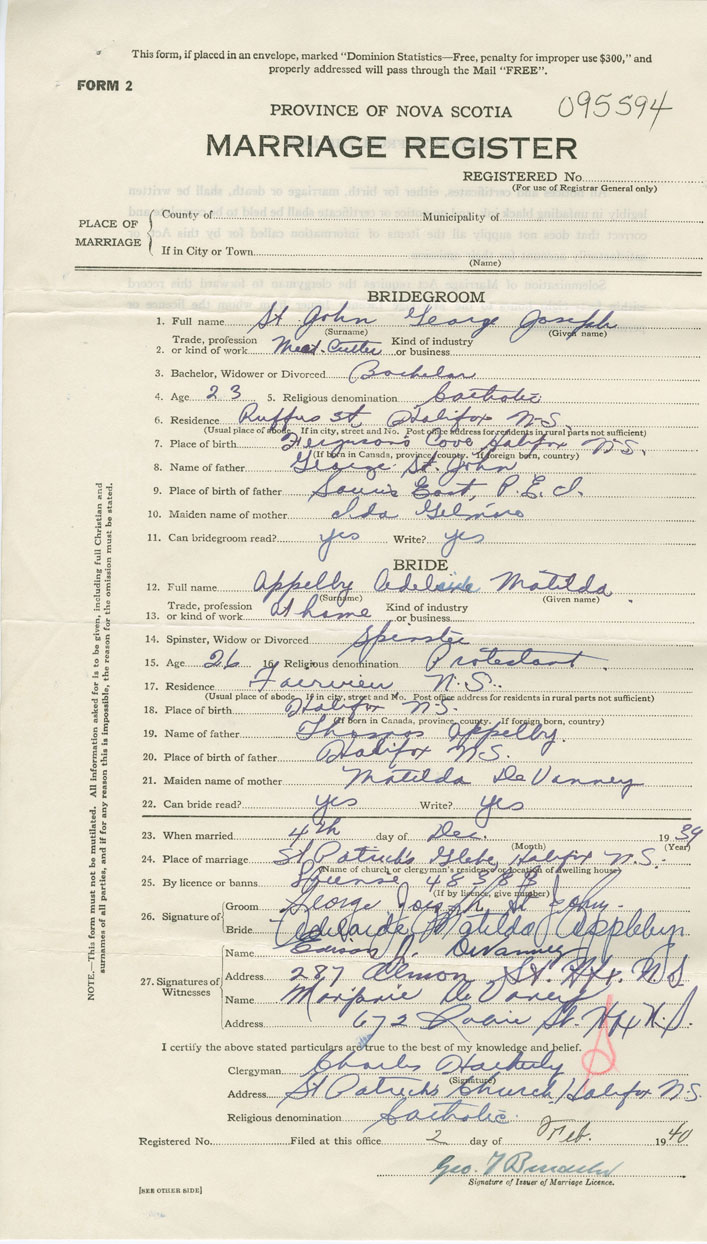 This form, if placed in an envelope, marked "Dominion Statistics—Free, penalty for improper use $300," and
properly addressed will pass through the Mail "FREE".
FORM 2
PROVINCE OF NOVA SCOTIA 095594
MARRIAGE REGISTER
REGISTERED No.
(For use of Registrar General only)
PLACE OF MARRIAGE
County of Municipality of
If in City or Town
(Name)
BRIDEGROOM
1. Full name St John George Joseph
(Surname) (Given name)
2. Trade, profession or kind of work Meat-Cutter Kind of industry or business
3. Bachelor, Widower or Divorced Bachelor
4. Age 23 5. Religious denomination Catholic
6. Residence Ruffus St. Halifax N-S.
(Usual place of abode. If in city, street and No. Post office address for residents in rural parts not sufficient)
7. Place of birth Ferguson's Cove Halifax N.S.
(If born in Canada, province, county. If foreign born, country)
8. Name of father George St. John
9. Place of birth of father Souris East, P.E.I.
10. Maiden name of mother Ida
11. Can bridegroom read? yes Write? yes
BRIDE
12. Full name Appelby Adelaide Matilda
(Surname) (Given name)
13. Trade, profession or kind of work at home Kind of industry or business
14. Spinster, Widow or Divorced Spinster
15. Age 26 16. Religious denomination Protestant.
17. Residence Fairview N.S.
(Usual place of abode. If in city, street and No. Post office address for residents in rural parts not sufficient)
18. Place of birth Halifax N.S.
(If born in Canada, province, county. If foreign born, country)
19. Name of father Thomas Appelby.
20. Place of birth of father Halifax N.S.
21. Maiden name of mother Matilda DeVanney
22. Can bride read? yes Write? yes
23. When married 4th day of Dec. 1939
(Month) (Year)
24. Place of marriage St Patrick's Glebe, Halifax N.S.
(Name of church or clergyman's residence or location of dwelling house)
25. By licence or banns License
(If by licence, give number)
26. Signature of
Groom George Joseph St John
Bride Adelaide Matilda Appleby
27. Signatures of Witnesses
Name DeVanney
Address 287 Almon St. Hfx. N.S
Name Marjorie DeVanney
Address 672 Robie St. Hfx N.S.
I certify the above stated particulars are true to the best of my knowledge and belief.
Clergyman Charles
(Signature)
Address St Patrick's Church, Halifax N.S.
Religious denomination Catholic.
Registered No. Filed at this office 2 day of Feb. 1940
Geo. F
Signature of Issuer of Marriage Licence.
[SEE OTHER SIDE]
NOTE.—This form must not be mutilated. All information asked for is to be given, including full Christian and
surnames of all parties, and if for any reason this is impossible, the reason for the omission must be stated.